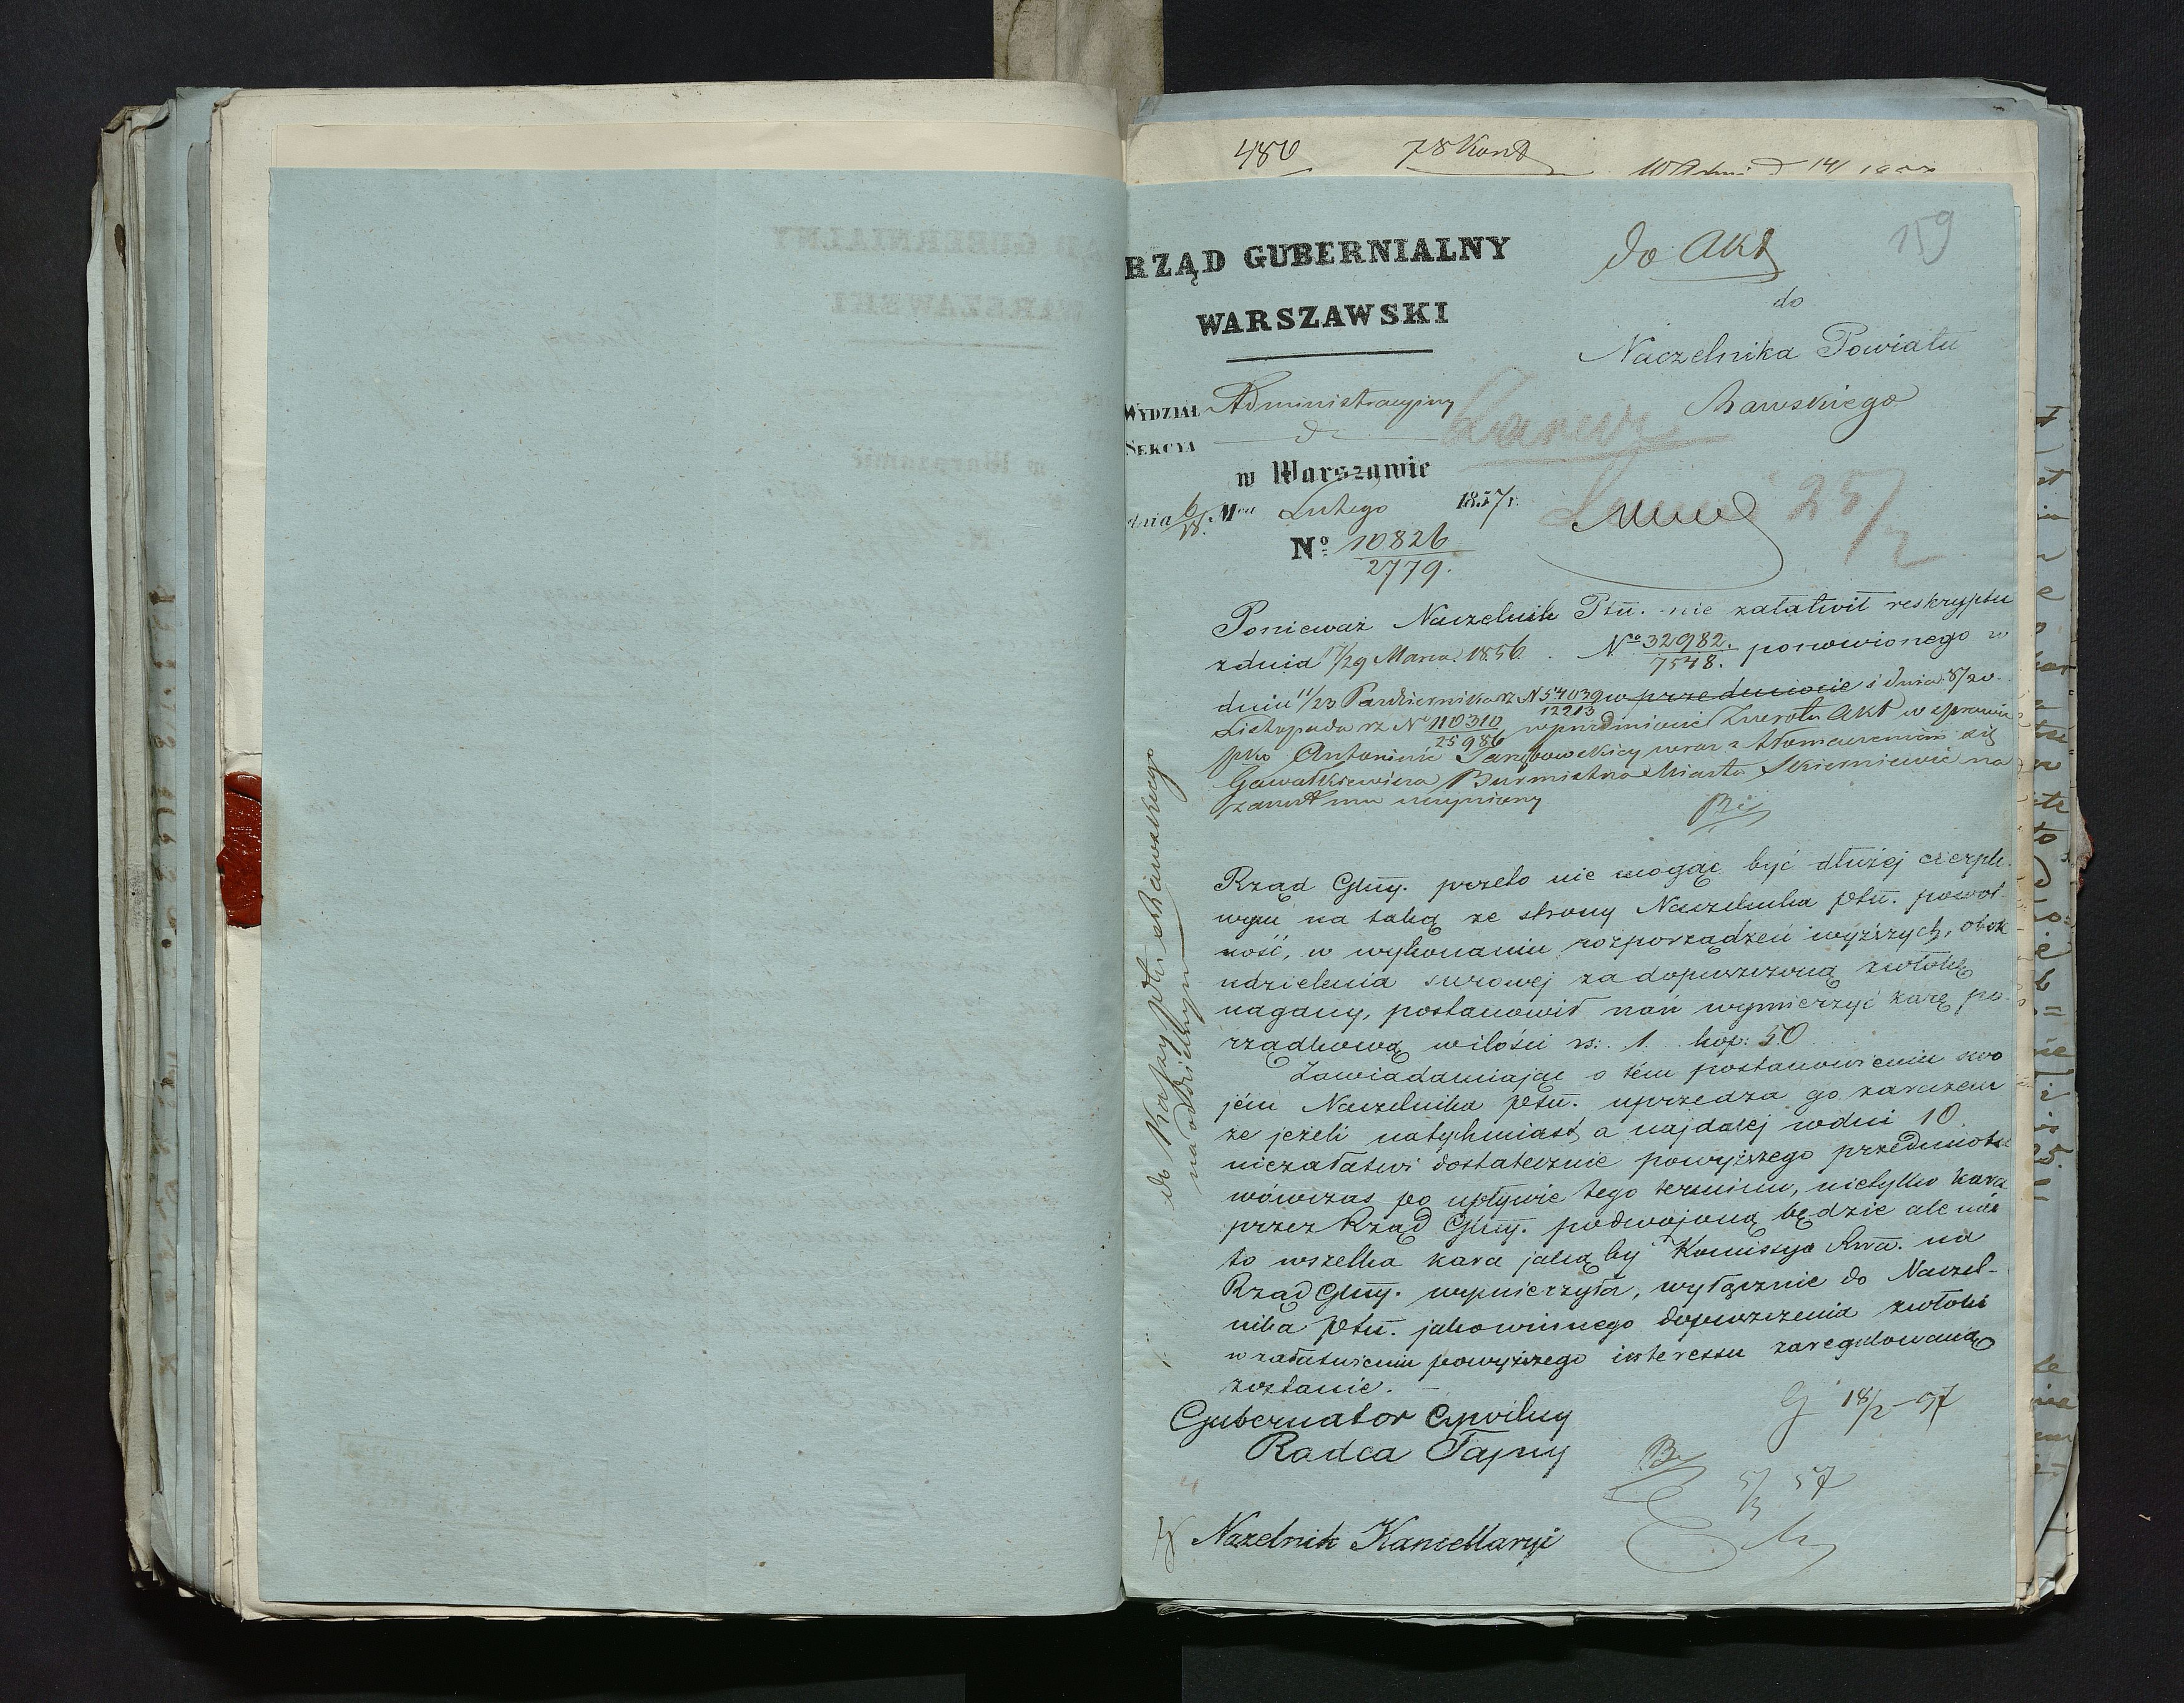 480 78 Kont
159
RZĄD GUBERNIALNY
WARSZAWSKI
do Akt
do
Naczelnika Powiatu
Rawskiego
WYDZIAŁ Administracyjny
SEKCYA
w Warszawie
dnia 6/18 Mca Lutego 1857 r.
25/2
No 10826
2779.
Ponieważ Naczelnik Ptu. nie załatwił reskryptu
z dnia 17/29 Marca 1856. No 32982. ponowionego w
7548.
dniu 11/23 Października rz N 54039 w przedmiocie i dnia 8/20
12213
Listopada rz No 110310 w przedmiocie Zwrotu Akt w sprawie
25986
pko Antoninie wraz z tłomaczeniem się
Gawałkiewicza Burmistrza Miasta Skierniewic na
zarzut mu uczyniony
Rząd Gluy. przeto nie mogąc być dłużej cierpli-
wym na taką ze strony Naczelnika ptu. powol-
ność, w wykonaniu rozporządzeń wyższych, obok
udzielenia surowej za dopuszczoną zwłokę
nagany, postanowił nań wymierzyć karę po-
rządkową w ilości rs: 1 kop: 50
Zawiadamiając o tém postanowieniu swo
jém Naczelnika ptu. uprzedza go zarazem
że jeżeli natychmiast, a najdalej w dni 10
niezałatwi dostatecznie powyższego przedmiotu
wówczas po upływie tego terminu, nietylko kara
przez Rząd Gluy. podwojoną będzie ale nad
to wszelka kara jaką by Komissya Rwa. na
Rząd Gluy. wymierzyła, wyłącznie do Naczel-
nika ptu. jako winnego dopuszczenia zwłoki
w załatwieniu powyższego interessu zaregulowaną
zostanie.
Gubernator Cywilny
Radca Tajny
G 18/2 57
5/3 57
Naczelnik Kancellaryi
do Kassy ptu. Rawskiego
na oddzielnym